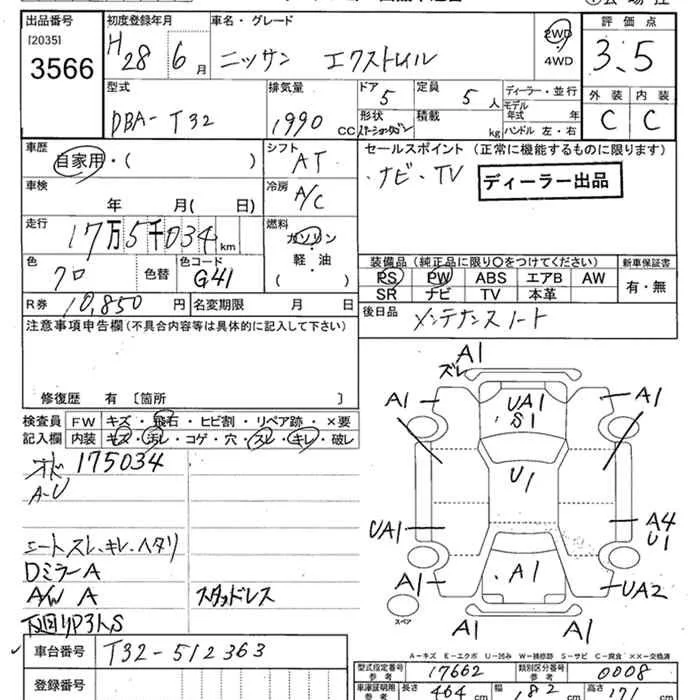 出品番号
[2035]
3566
初度登録年月
H28 6 月
車名・グレード
ニッサン エクストレイル
2WD
4WD
評価点
3.5
外装 内装
C C
型式
DBA-T32
排気量
1990 CC
ドア
5
定員
5 人
形状
積載
kg
ディーラー・並行
モデル
年式 年
ハンドル 左・右
車歴
自家用・( )
シフト
AT
セールスポイント(正常に機能するものに限ります)
ナビ・TV
ディーラー出品
車検
年 月( 日)
冷房
A/C
走行
17万5千034 km
燃料
ガソリン
軽・油
( )
色
クロ
色替
色コード
G41
装備品(純正品に限り○をつけてください)
PS PW ABS エアB AW
SR ナビ TV 本革
新車保証書
有・無
R券 10,850 円
名変期限 月 日
後日品 メンテナンスノート
注意事項申告欄(不具合内容等は具体的に記入して下さい)
修復歴 有〔箇所 〕
検査員
記入欄
FW キズ・飛石・ヒビ割・リペア跡・×要
内装 キズ・汚レ・コゲ・穴・スレ・キレ・破レ
オド 175034
A-U
シートスレ、キレ、ヘタリ
DミラーA
A/W A
スタッドレス
下回リP3トS
A1
ズレ
A1
UA1
S1
A1
U1
UA1
A4
U1
A1
A1
UA2
スペア
A1
A1
A-キズ E-エクボ U-凹み W-補修跡 S-サビ C-腐食 ××-交換済
車台番号 T32-512363
登録番号
型式指定番号
参考
17662
類別区分番号
参考
0008
車庫証明用
参考
長さ 464 cm
幅 182 cm
高さ 171 cm